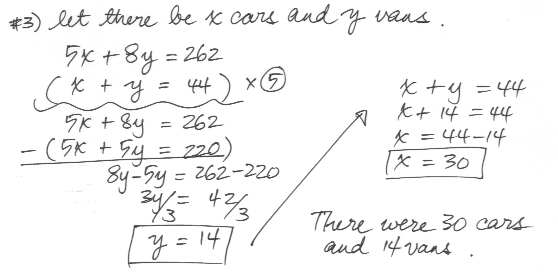 #3) let there be x cars and y vans.
5x + 8y = 262
(x + y = 44) x ⑤
5x + 8y = 262
- (5x + 5y = 220)
8y - 5y = 262 - 220
3y/3 = 42/3
y = 14
x + y = 44
x + 14 = 44
x = 44 - 14
x = 30
There were 30 cars
and 14 vans.